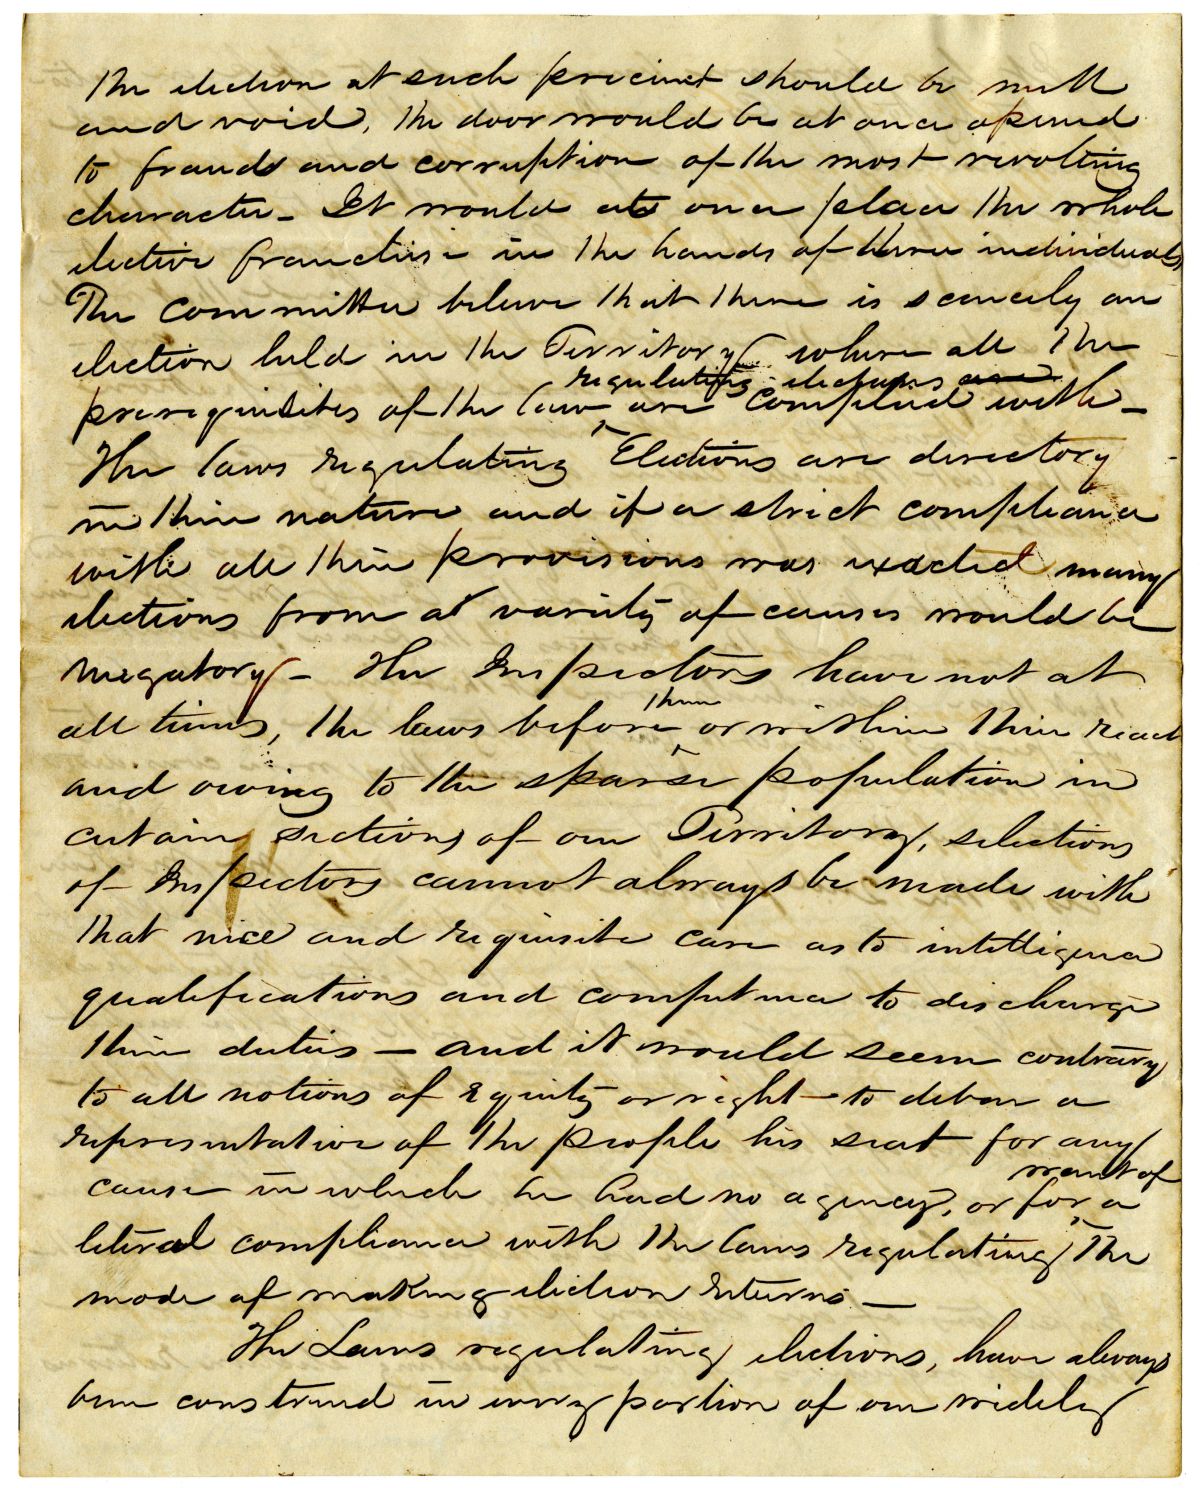 the election at such precinct should be null
and void, the door would be at once opened
to frauds and corruption of the most revolting
character – It would at once place the whole
elective franchise in the hands of three individuals
The committee believe that there is scarcely an
election held in the Territory where all the
regulating elections are
prerequisites of the law are complied with –
The laws regulating Elections are directory
in their nature and if a strict compliance
with all their provisions was exacted many
elections from a variety of causes would be
nugatory – The Inspectors have not at
them
all times, the laws before or within their reach
and owing to the sparse population in
certain sections of our Territory, selections
of Inspectors cannot always be made with
that nice and requisite care as to intelligence
qualifications and competence to discharge
their duties – and it would seem contrary
to all notions of equity or right – to debar a
representative of the people his seat for any
want of
cause in which he had no agency, or for a
literal compliance with the laws regulating the
mode of making election returns –
The Laws regulating elections, have always
been construed in every portion of our widely